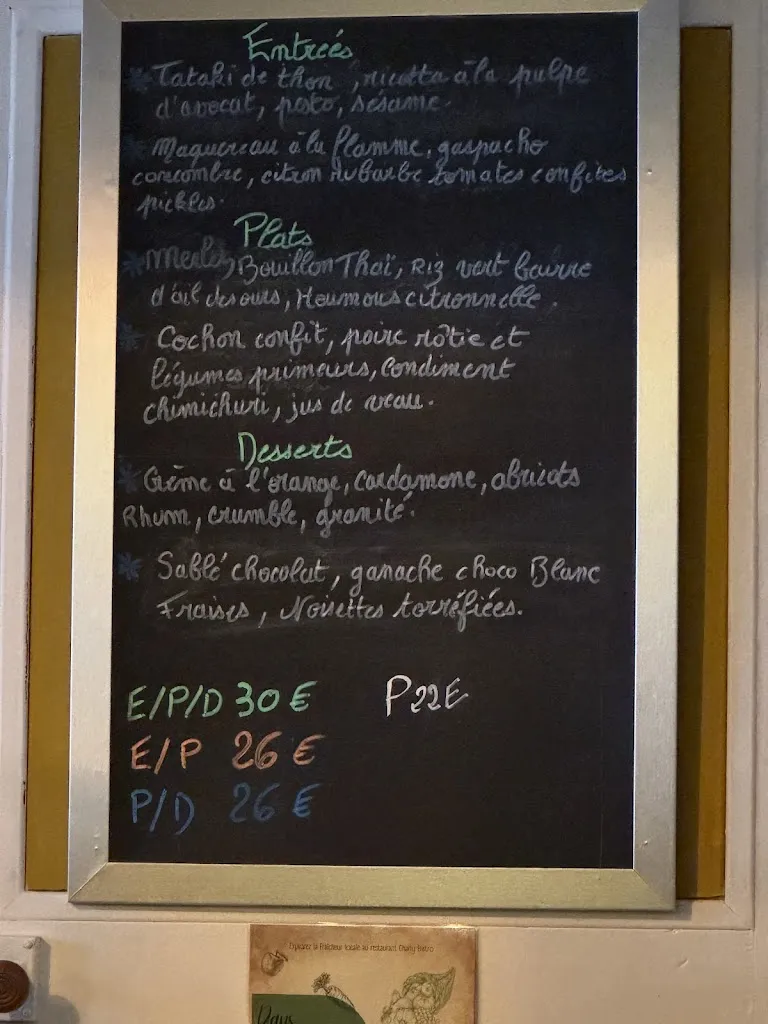 Entrées
* Tataki de thon, ricotta à la pulpe
d'avocat, pesto, sésame.
* Maquereau à la flamme, gaspacho
concombre, citron rubarbe tomates confites
pickles.
Plats
* Merlu, Bouillon Thaï, Riz vert beurre
d'ail des ours, Houmous citronnelle.
* Cochon confit, poire rôtie et
légumes primeurs, Condiment
chimichuri, jus de veau.
Desserts
* Crème à l'orange, Cardamone, abricots
Rhum, crumble, granité.
* Sablé chocolat, ganache choco Blanc
Fraises, Noisettes torréfiées.
E/P/D 30 € P 22€
E/P 26 €
P/D 26 €
Explorez la fraîcheur locale au restaurant